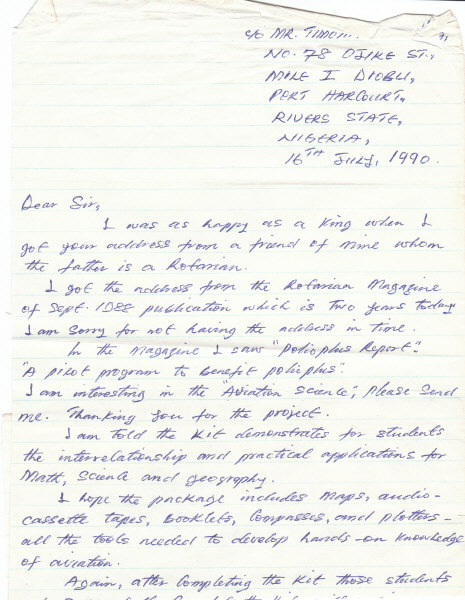 c/o MR. TIMON..
NO. 78 OJIKE ST.,
MILE I DIOBU,
PORT HARCOURT,
RIVERS STATE,
NIGERIA,
16TH JULY, 1990.
Dear Sir,
I was as happy as a King when I
got your address from a friend of mine whom
the father is a Rotarian.
I got the address from the Rotarian Magazine
of Sept. 1988 publication which is two years today
I am sorry for not having the address in time.
In the Magazine I saw "Polioplus Report".
"A Pilot program to benefit polioplus".
I am interesting in the "Aviation Science", Please Send
me. Thanking you for the project.
I am told the Kit demonstrates for students
the interrelationship and practical applications for
Math, Science and geography.
I hope the package includes Maps, audio-
cassette tapes, Booklets, Compasses, and plotters -
all the tools needed to develop hands-on knowledge
of aviation.
Again, after completing the Kit those students